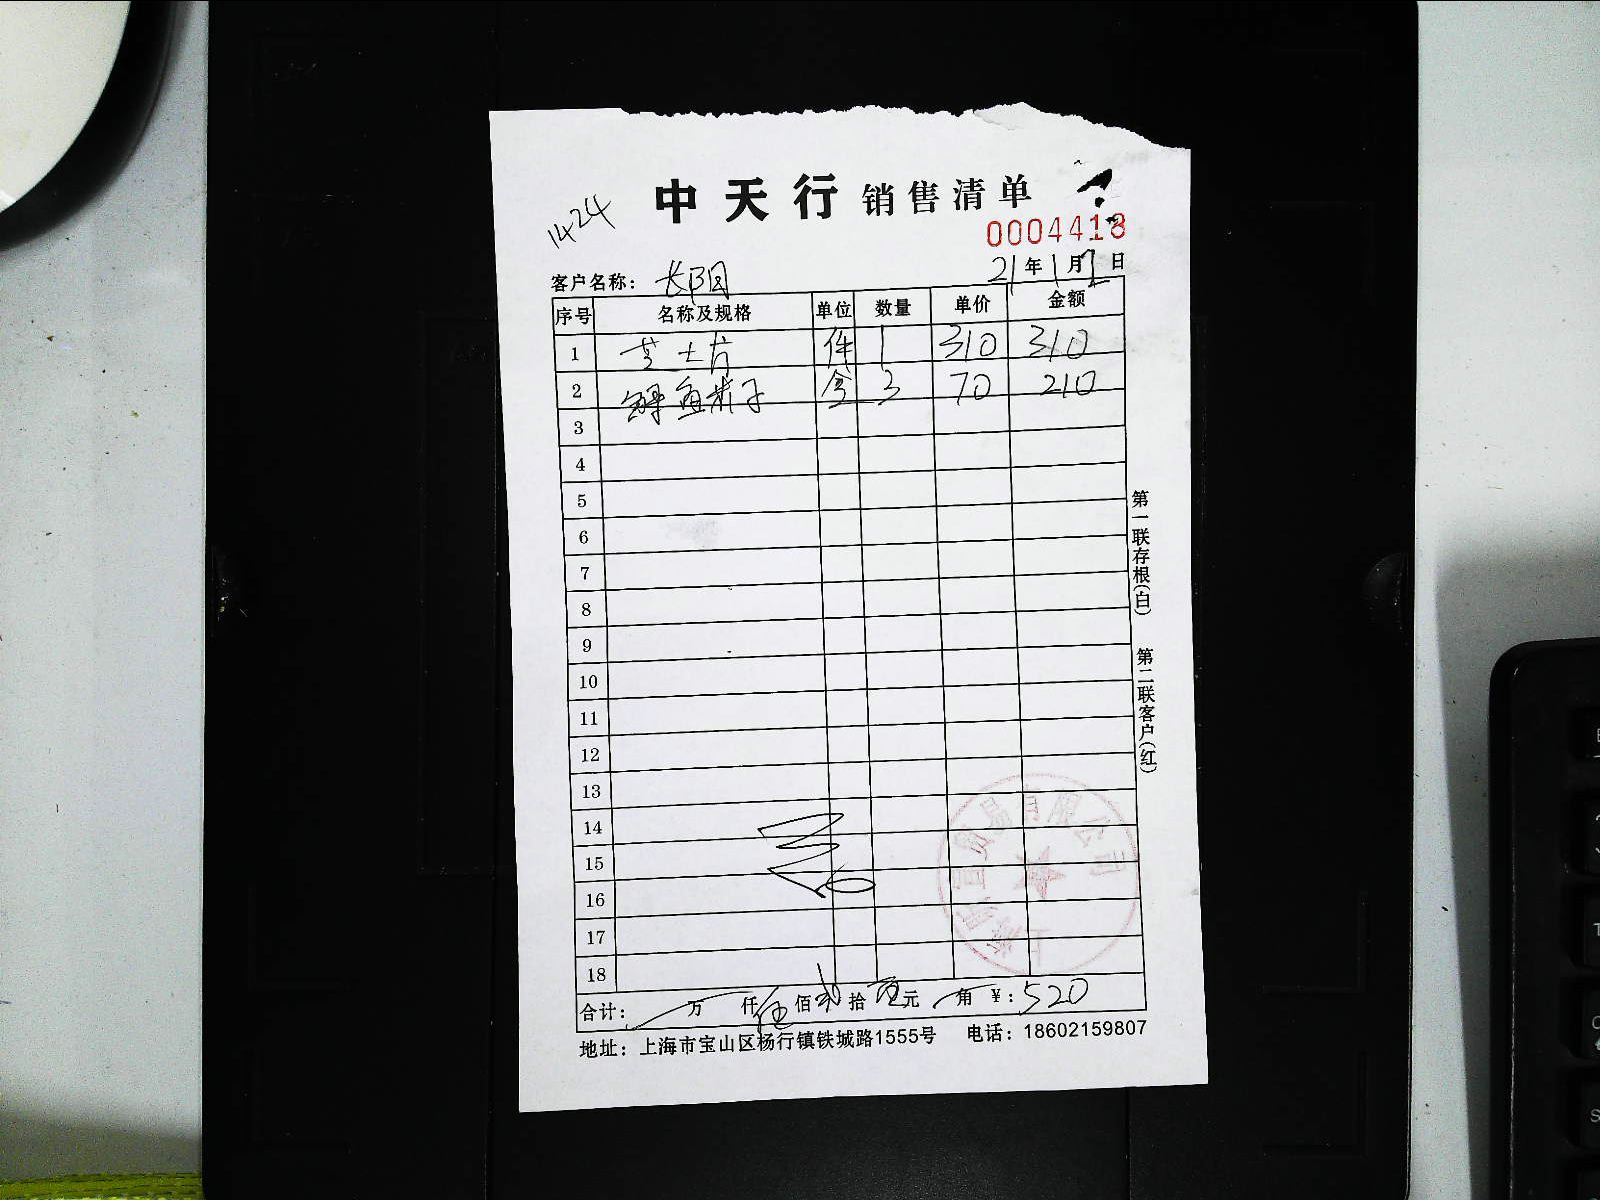 中天行 销售清单
1424
0004418
客户名称：长阳
21年1月2日
序号 名称及规格 单位 数量 单价 金额
1 芝士片 件 1 310 310
2 鲟鱼籽子 盒 3 70 210
3
4
5
6
7
8
9
10
11
12
13
14
15
16
17
18
合计： 万 仟 伍 佰 贰 拾 零 元 角 ¥：520
地址：上海市宝山区杨行镇铁城路1555号 电话：18602159807
第一联存根(白) 第二联客户(红)
贸易有限公司
上海